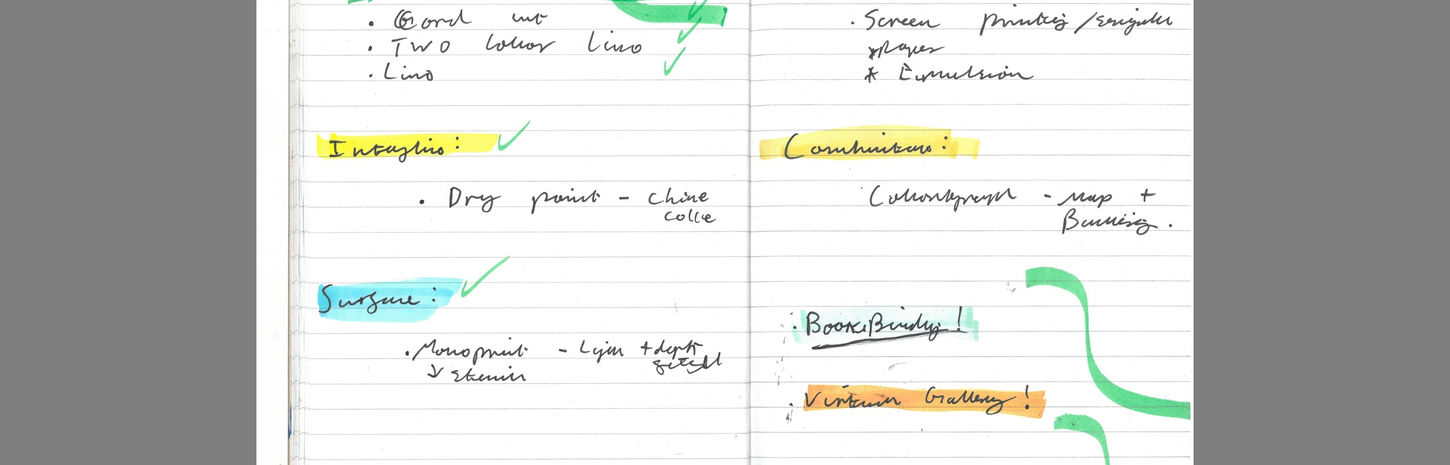 • Card cut
• TWO colour Lino
• Lino
Intaglio:
• Dry point - Chine
colle
Surface:
• Monoprint - Layer + depth
↓ stencil
• Screen printing /
* Paper
* Emulsion
Combinations:
Collagraph - Map +
Building.
• BookBinding!
• Virtual Gallery!